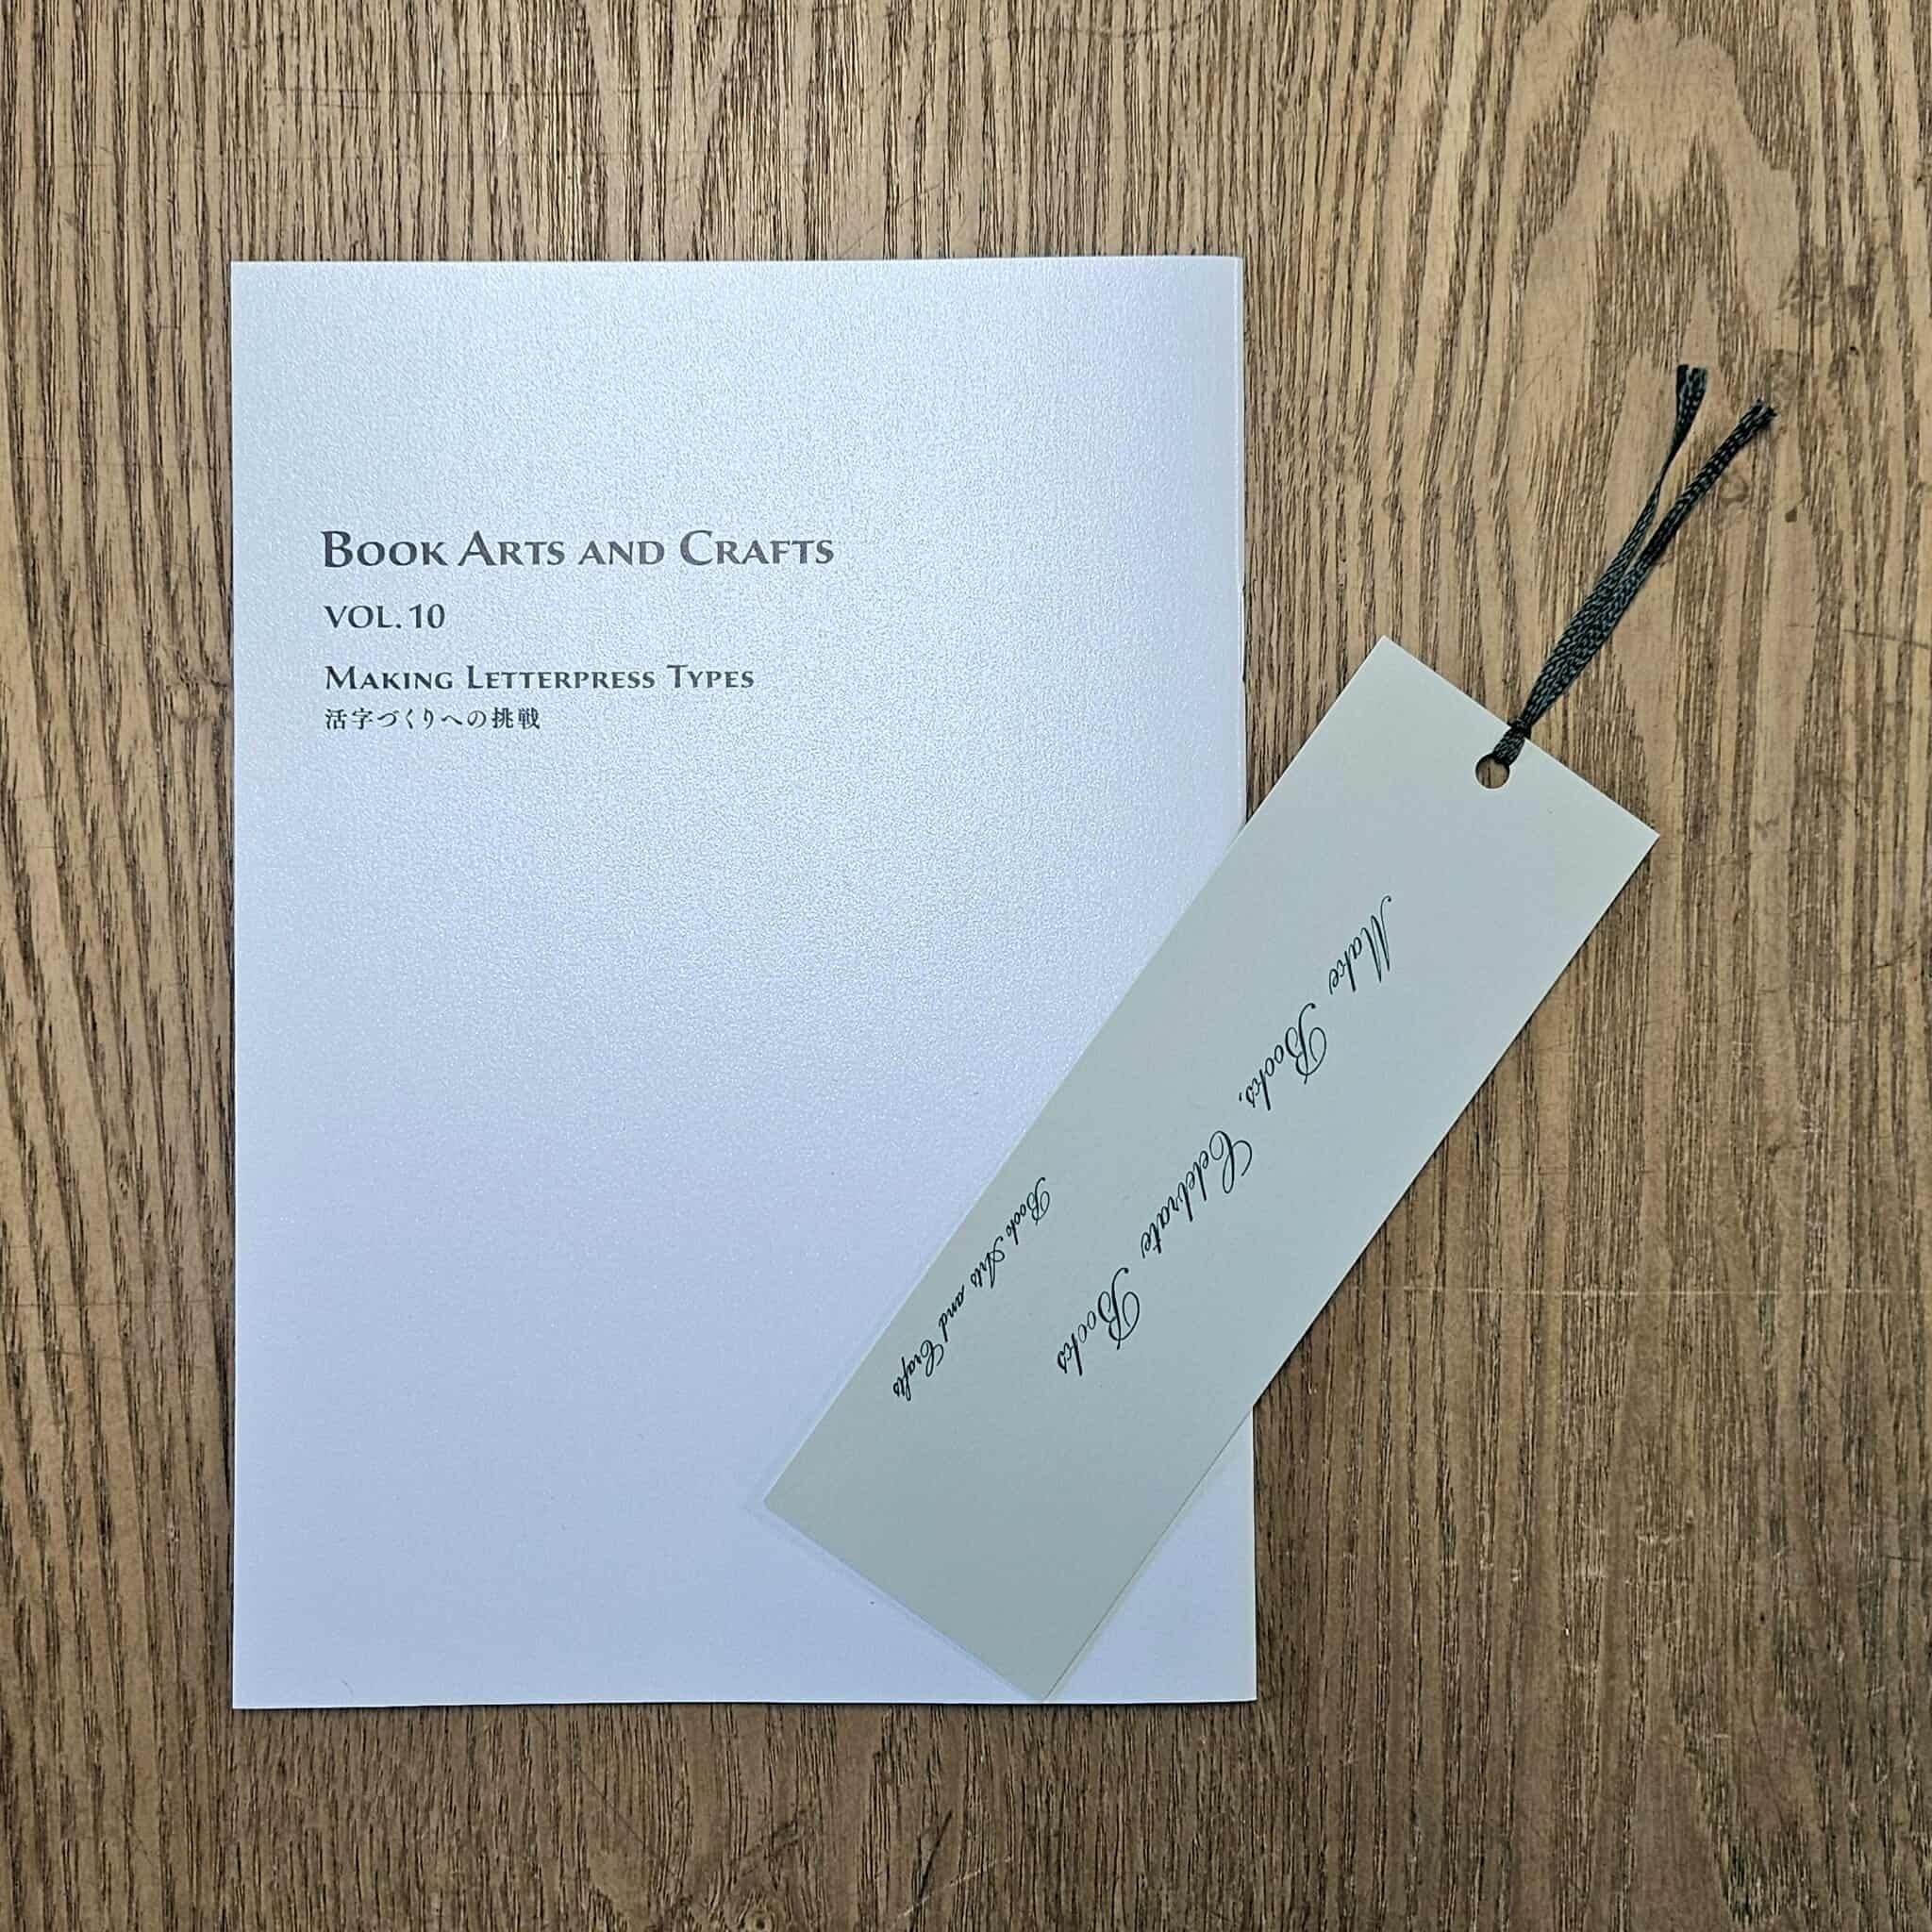 Book Arts and Crafts
VOL. 10
Making Letterpress Types
活字づくりへの挑戦
Make Books, Celebrate Books
Book Arts and Crafts